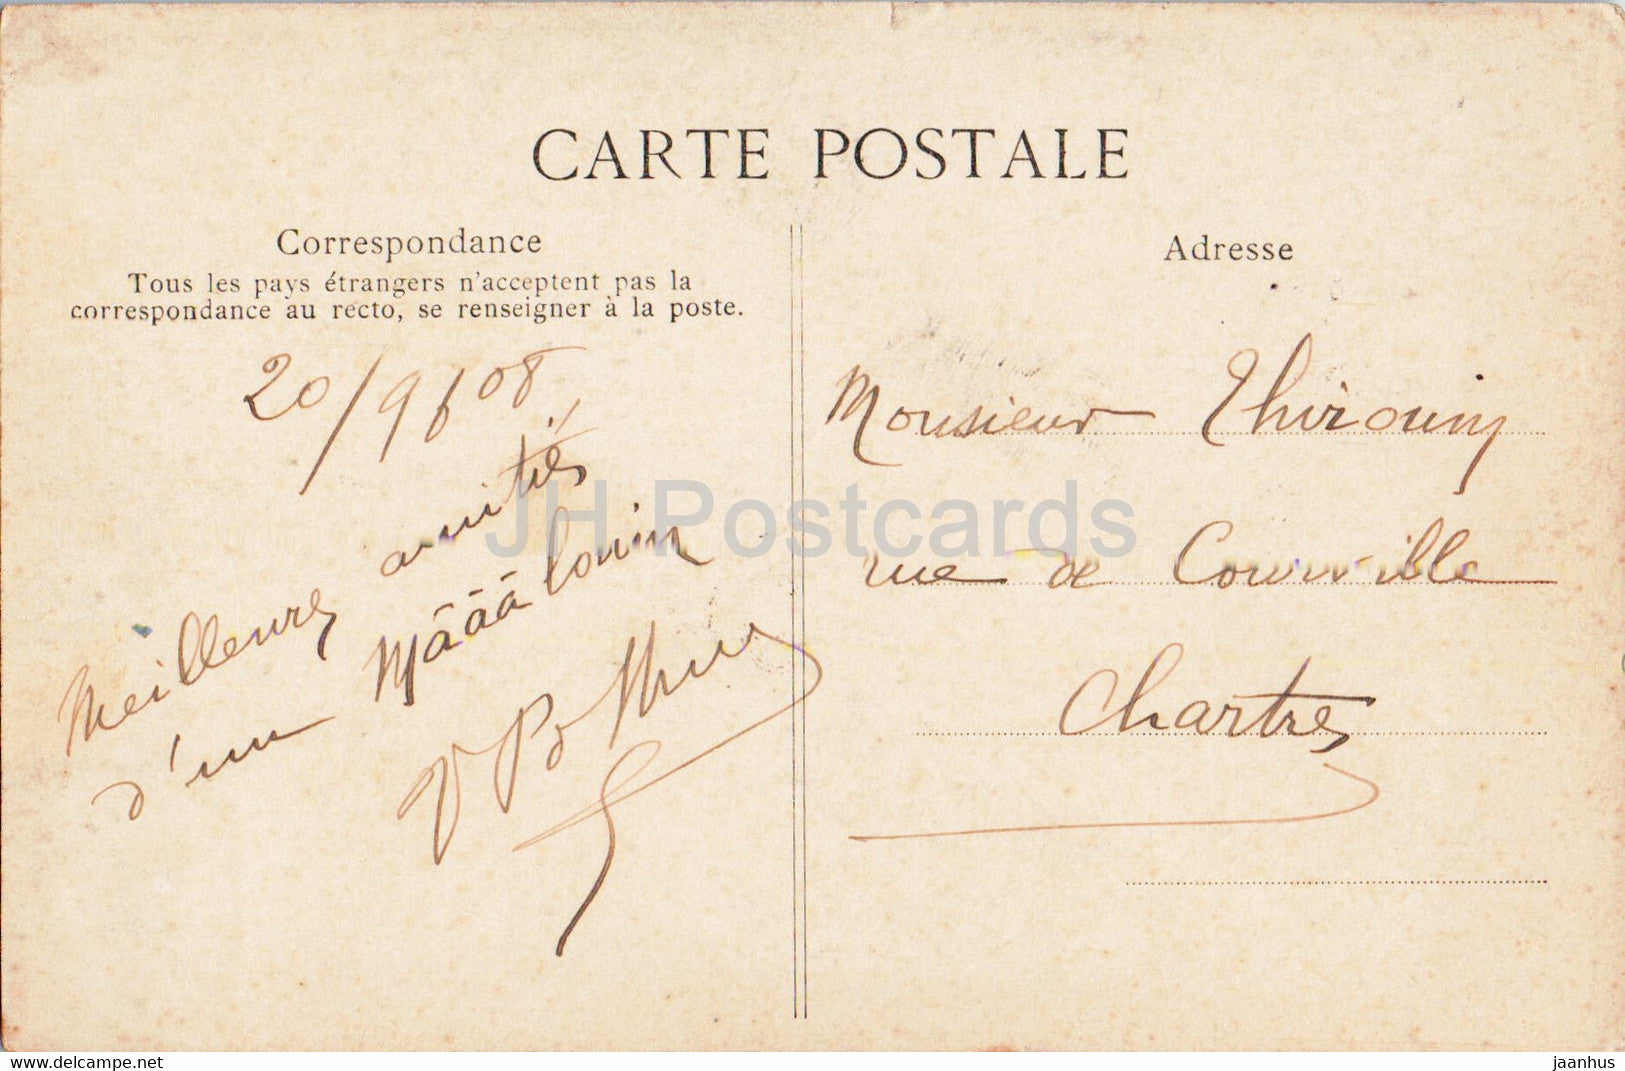 CARTE POSTALE
Correspondance
Tous les pays étrangers n'acceptent pas la
correspondance au recto, se renseigner à la poste.
20/9/08
Meilleures amitiés
d'un Mâââlouin
Adresse
Monsieur Thirouin
rue de Courville
Chartres
JH Postcards
delcampe.net
jaanhus